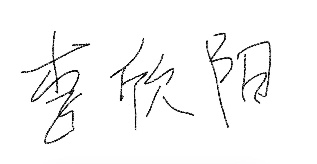 李欣阳